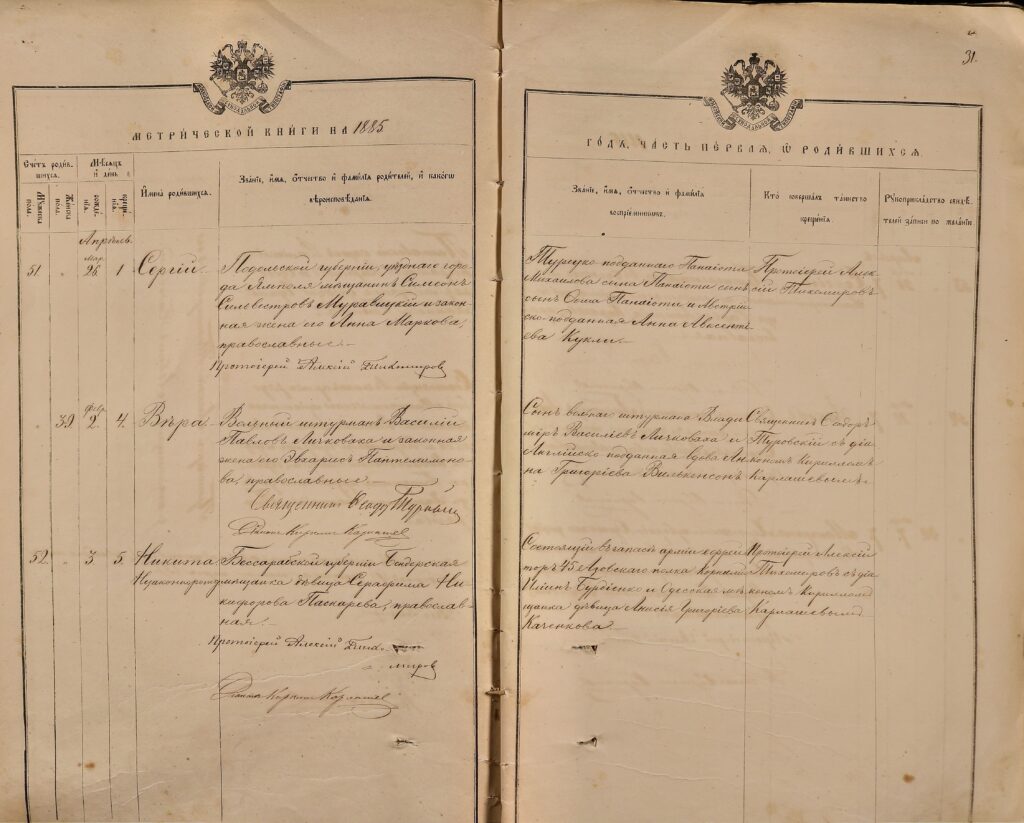 31.
МЕТРИ́ЧЕСКОЙ КНИ́ГИ НА 1885
Счётъ роди́вшихся.
Мѣсяцъ и день
И́мена роди́вшихся.
Зва́нїе, и́мя, ѻ҆́тчество и҆ фами́лїа роди́телей, и҆ какого вѣроисповѣ́данїѧ.
Мужеска
Женска
рожденія
крещенія
Апрѣлевъ.
51.
Мар. 28
1
Сергій.
Подольской губерніи, уѣзднаго горо
да Ямполя мѣщанинъ Симеонъ
Сильвестровъ Муравицкій и закон
ная жена его Анна Маркова,
православные.
Протоіерей Алексій Тихомировъ
39
Февр. 2.
4.
Вѣра.
Вольный штурманъ Василій
Павловъ Личковаха и законная
жена его Эвхарисъ Пантелимоно
ва, православные.
Священникъ Ѳеод. Турскій
Діаконъ Кириллъ Карпашев
52
3
5.
Никита
Незаконнорожд
Бессарабской губерніи Бендерская
мѣщанка дѣвица Серафима Ни
кифорова Паскарева, православ
ная.
Протоіерей Алексій Тихо
мировъ
Діаконъ Кириллъ Карпашев
ГО́ДА, ЧА́СТЬ ПЕ́РВАЯ, Ѡ РОДИ́ВШИХСЯ.
Зва́нїе, и́мя, ѻ҆́тчество и҆ фами́лїа воспрїе́мниковъ.
Кто̀ соверша́лъ та́инство креще́нїѧ.
Рꙋкоприкла́дство свидѣ́телей за́писи по жела́нїю
Турецко подданнаго Панаіота
Михаилова сына Панаіоти сынъ
сынъ Ѳома Панаіоти и Австрій
ско-подданная Анна Авксентi
ева Кукли.
Протоіерей Алек
сій Тихомировъ
Сынъ вольнаго штурмана Влади
міръ Васильевъ Личковаха и
Англійско подданная вдова Ан
на Григоріева Вилькенсонъ
Священникъ Ѳеодоръ
Туровскій съ діа
кономъ Кирилломъ
Карпашевымъ
Состоящій въ запасѣ арміи ефрей
торъ 45 Азовскаго полка Корнилій
Ильинъ Бурдіенко и Одесская мѣ
щанка дѣвица Анисія Григоріева
Каченкова.
Протоіерей Алексій
Тихомировъ съ діа
кономъ Кирилломъ
Карпашевымъ